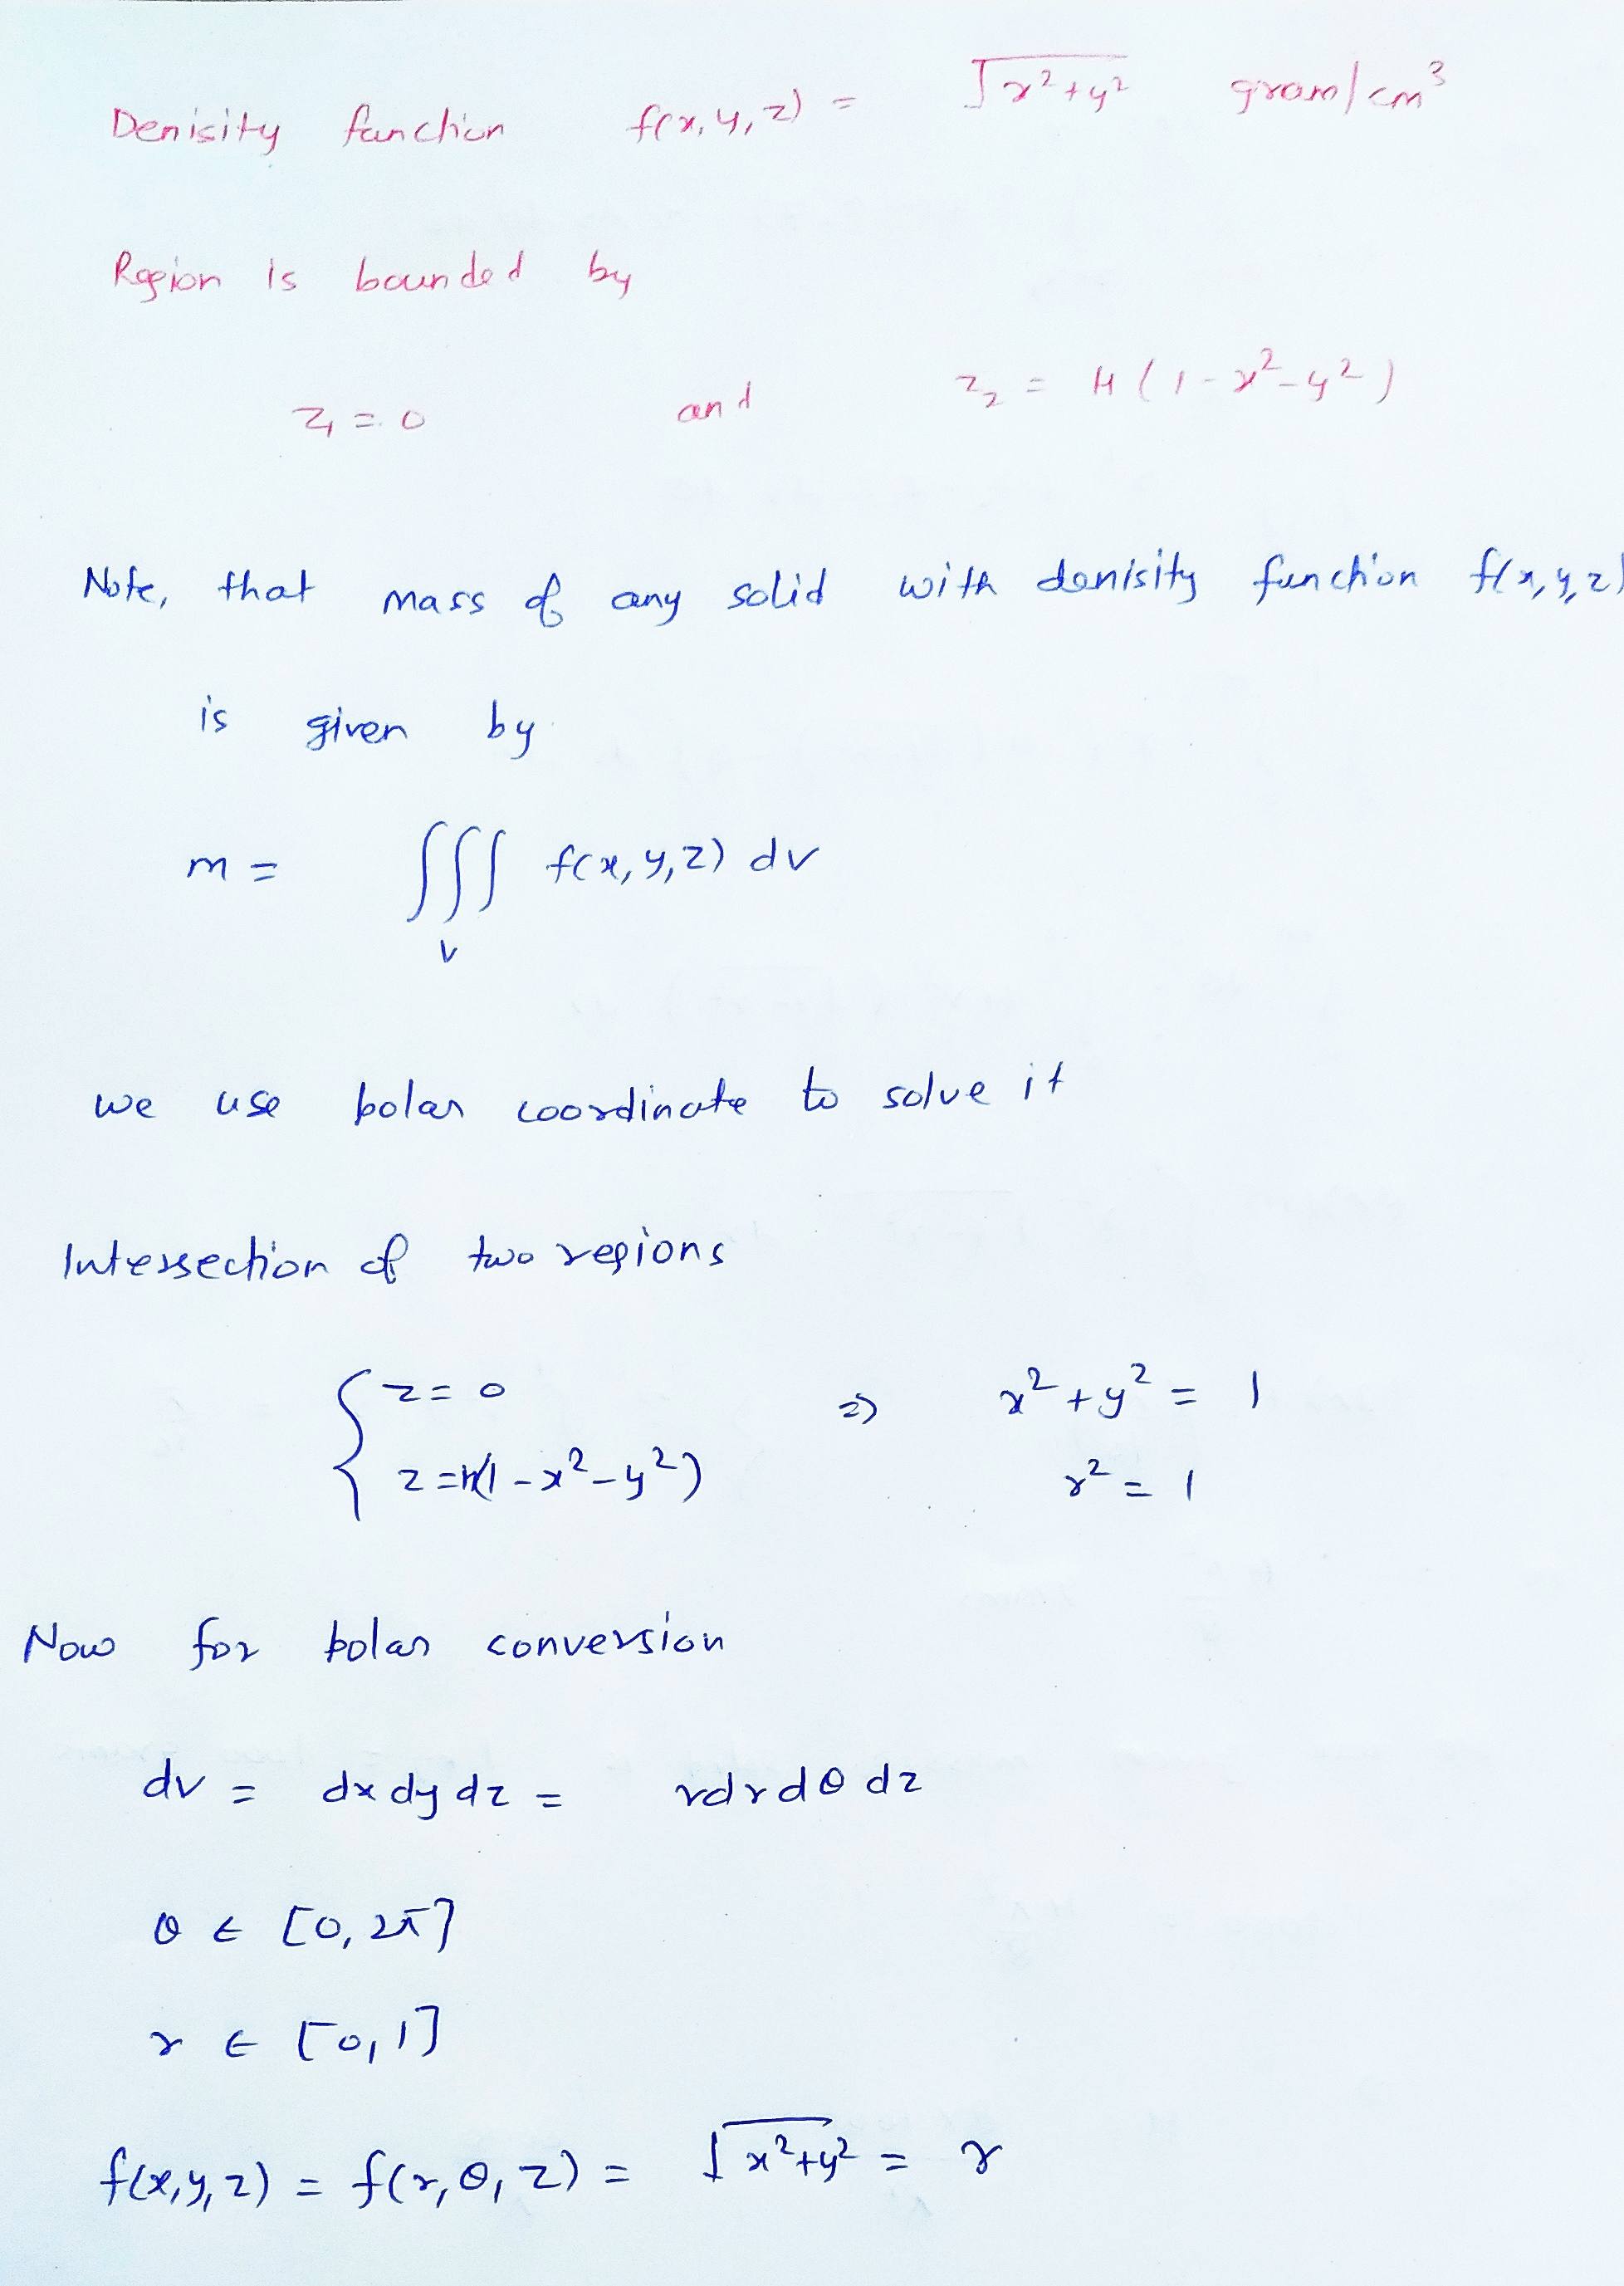 Denisity function f(x,y,z) = √x²+y² gram/cm³
Region is bounded by
z₁ = 0 and z₂ = H(1-x²-y²)
Note, that mass of any solid with denisity function f(x,y,z)
is given by
m = ∭ f(x,y,z) dv
v
we use polar coordinate to solve it
Intersection of two regions
{ z = 0 ⇒ x²+y² = 1
z = H(1-x²-y²) r² = 1
Now for polar conversion
dv = dx dy dz = rdrdθdz
θ ∈ [0, 2π]
r ∈ [0,1]
f(x,y,z) = f(r,θ,z) = √x²+y² = r